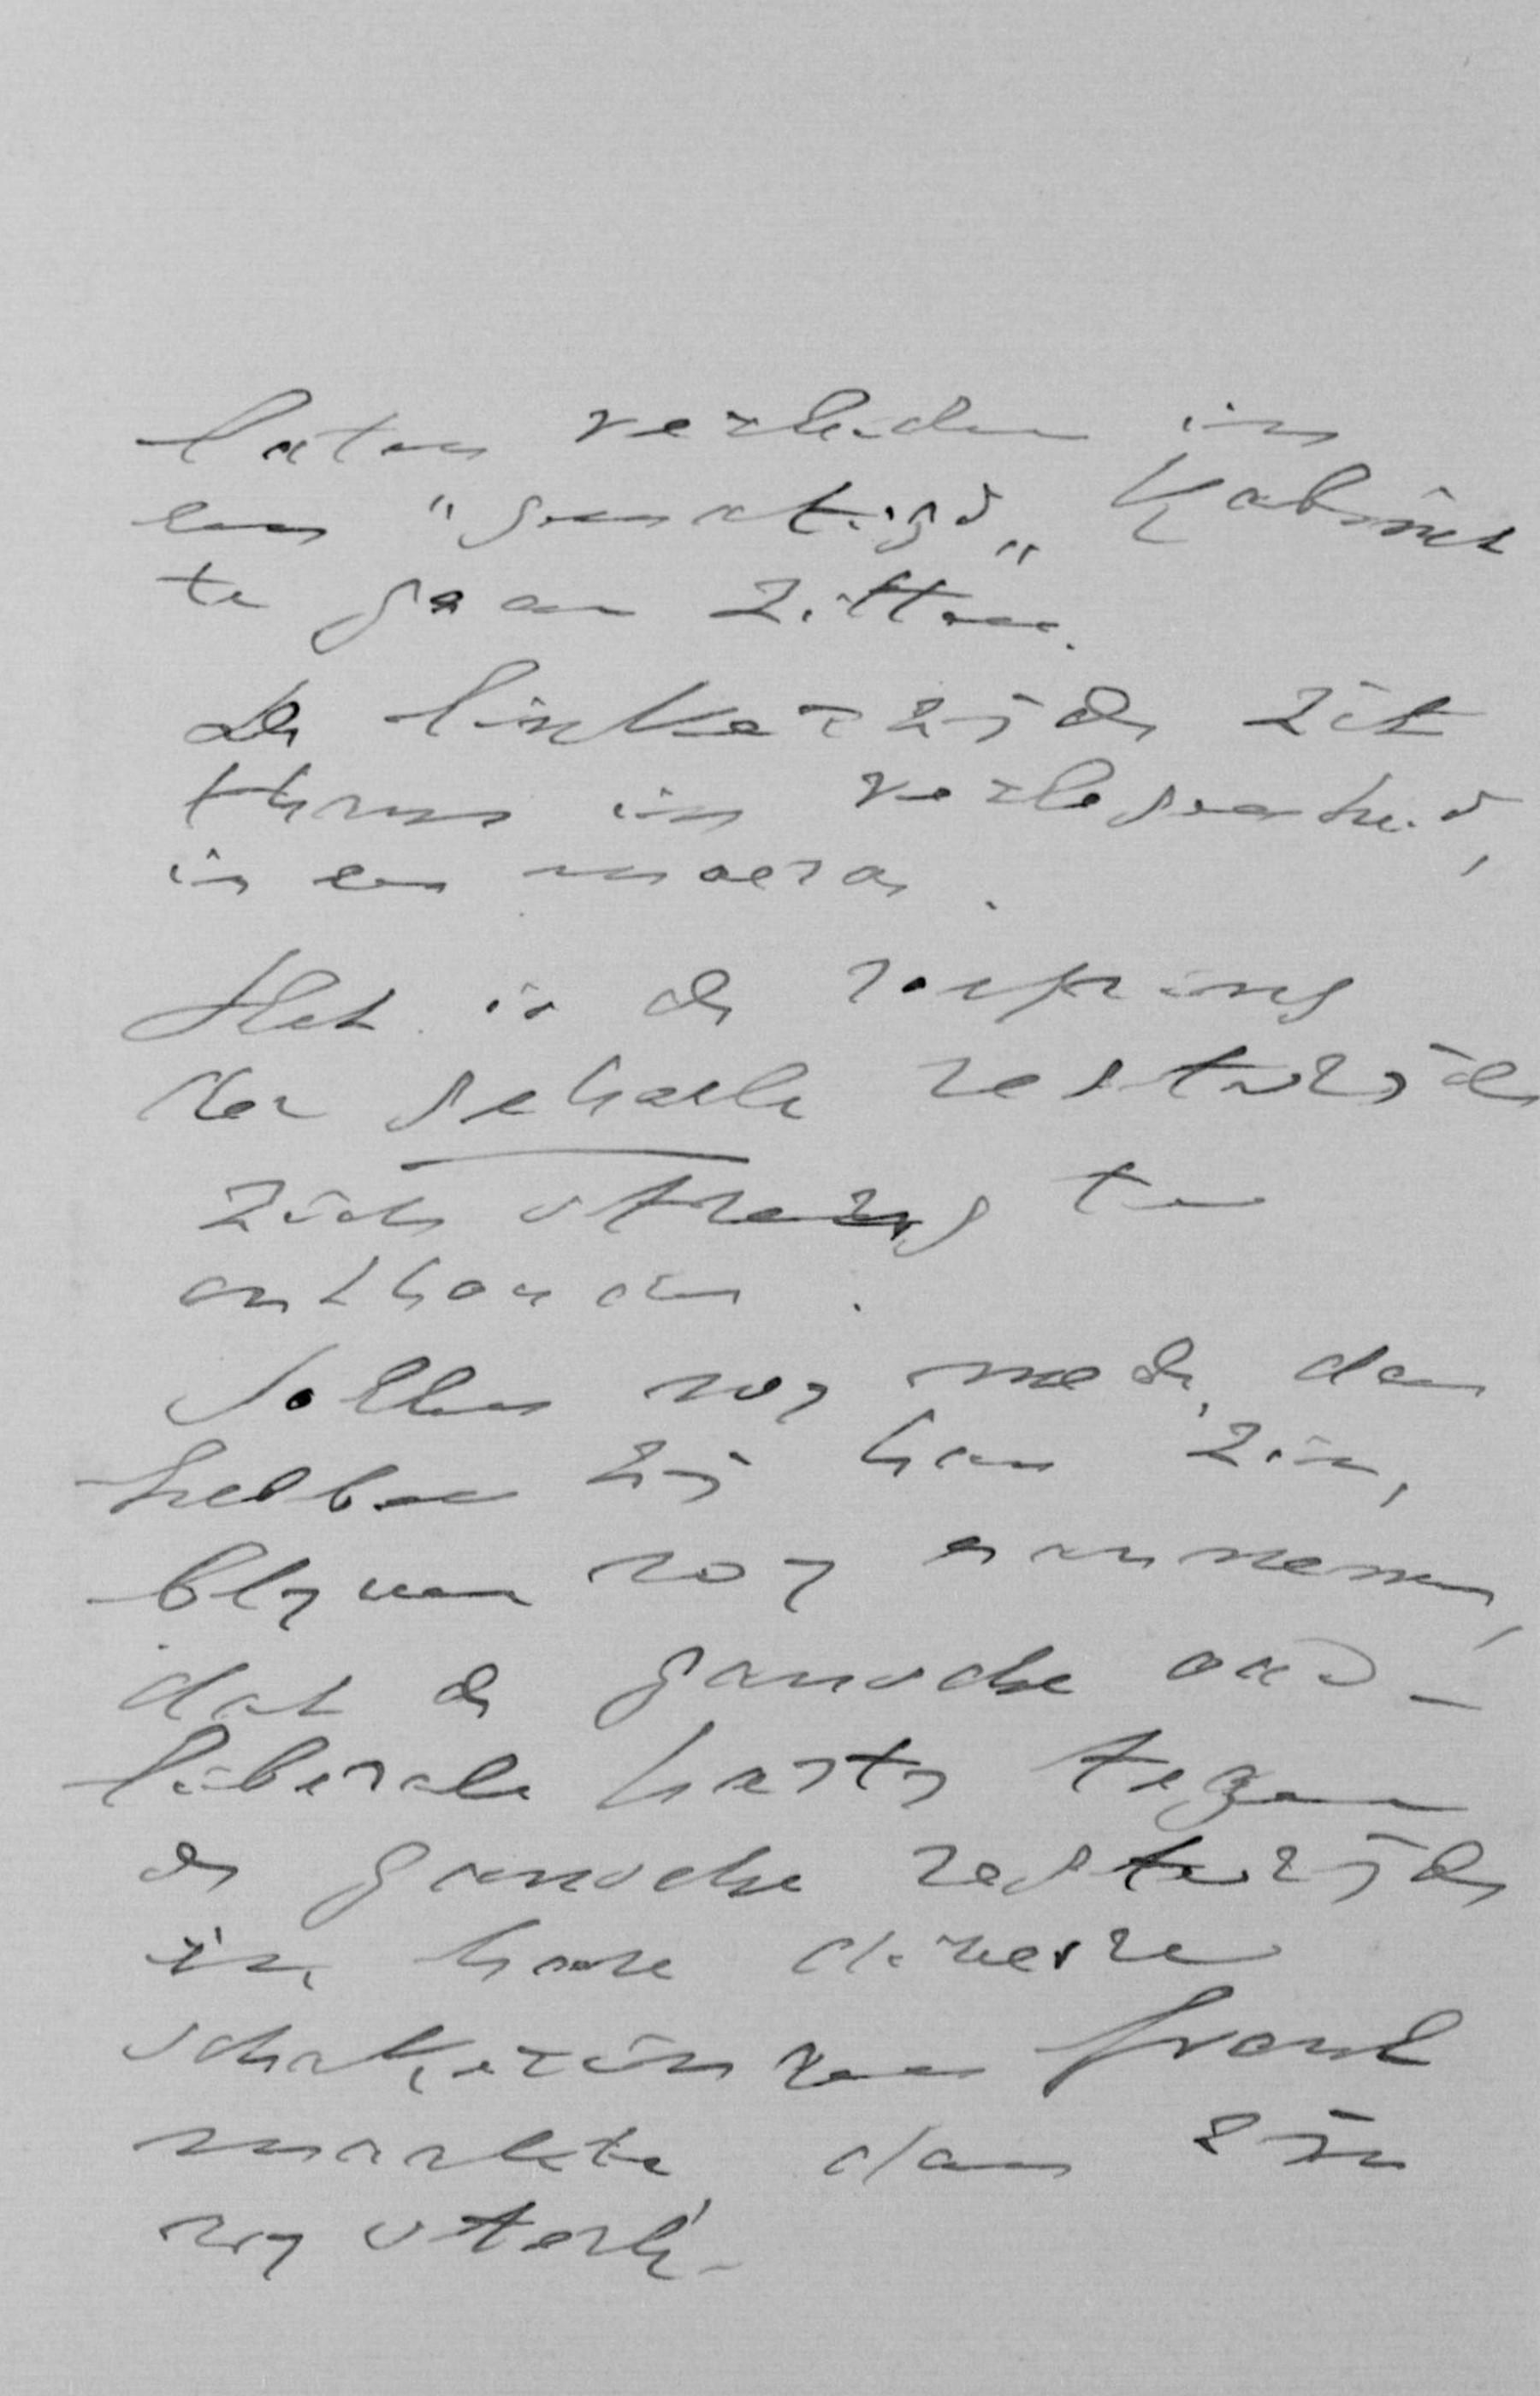 laten verleiden in
een "gematigd" Kabinet
te gaan zitten.
De linkerzijde zit
thans in verlegenheid,
in een moeras.
Het is de roeping
der geheele rechterzijde
zich streng te
onthouden.
Doen wy mede, dan
hebben zij hun zin,
blyven wy
dat de gansche oud-
liberale party tegen
de gansche rechterzijde
in hare diverse
schakeeringen front
maakte, dan zijn
wy sterk.